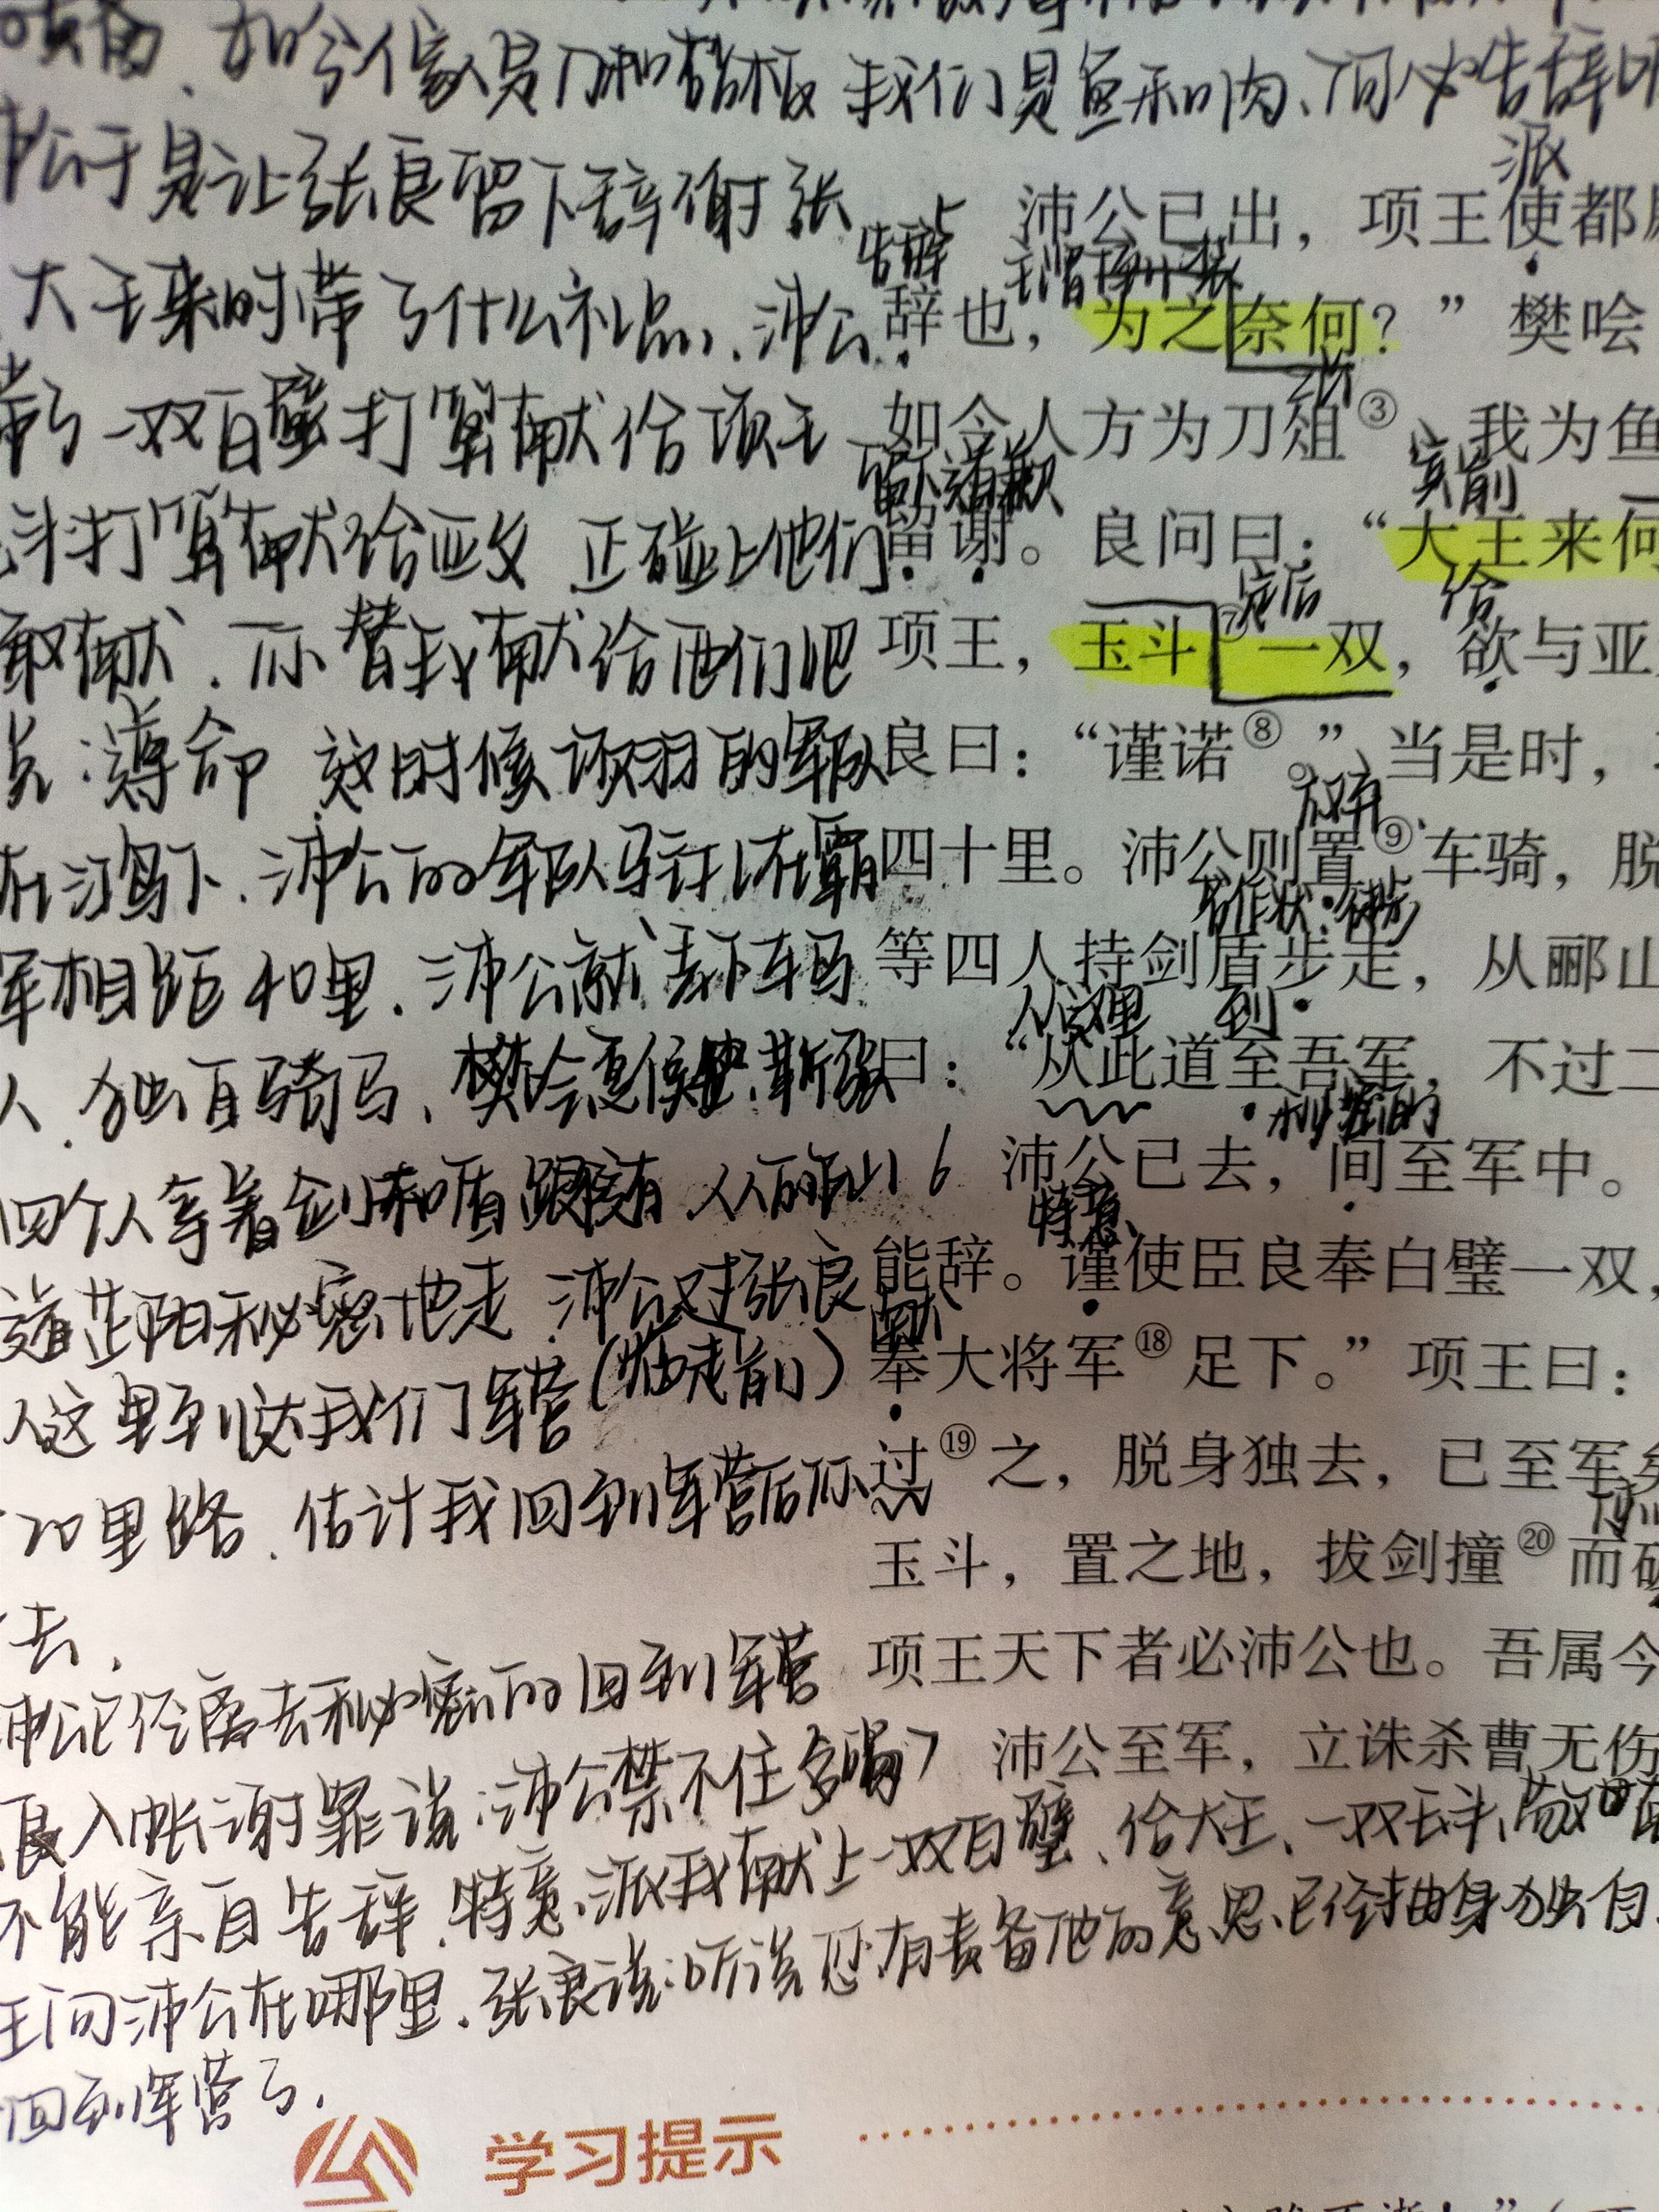 如今人家是刀和砧板 我们是鱼和肉、何必告辞
于是让张良留下辞谢 张
大王来时带了什么礼品、沛公
一双白璧打算献给项王
斗打算献给亚父 正碰上他们
敢献、你替我献给他们吧
遵命 这时候项羽的军队
在鸿门下、沛公的军队驻扎在霸
军相距40里、沛公就丢下车马
人、独自骑马、樊会夏侯婴、靳强
四个人拿着剑和盾跟随着 从丽山
道芷阳秘密地走 沛公对张良
从这里到达我们军营(临走前)
20里路、估计我回到军营后你
去、
沛公已经离去秘密的回到军营
良入帐谢罪说：沛公禁不住多喝
不能亲自告辞、特意、派我献上一双白璧、给大王、一双玉斗、
王问沛公在哪里、张良说：听说您有责备他的意思、已经抽身独自
回到军营了、
派
沛公已出，项王使都
告辞
辞也，为之奈何？”樊哙
如今人方为刀俎③，我为鱼
留下道歉
宾前
留谢。良问曰：“大王来何
定后
给
项王，玉斗⑦一双，欲与亚
良曰：“谨诺⑧。”当是时，
放弃
四十里。沛公则置⑨车骑，脱
名作状 徒步
等四人持剑盾步走，从郦山
从这里 到
曰：“从此道至吾军，不过二
6 沛公已去，间至军中。
特意
能辞。谨使臣良奉白璧一双，
献
奉大将军⑱足下。”项王曰：
过⑲之，脱身独去，已至军矣
玉斗，置之地，拔剑撞⑳而破
项王天下者必沛公也。吾属今
7 沛公至军，立诛杀曹无伤
学习提示